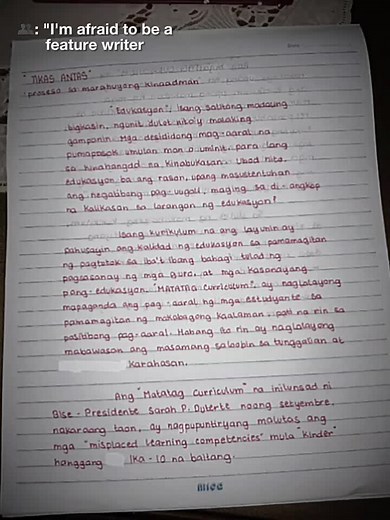 : "I'm afraid to be a
feature writer
"TIKAS ANTAS"
proseso sa marabuyong kinaadman
"Edukasyon", isang salitang madaling
bigkasin, ngunit dulot nito'y malaking
gampanin. Mga desididong mag-aaral na
pumapasok umulan man o uminit, para lang
sa hinahangad na kinabukasan. Ubod nito,
edukasyon ba ang rason, upang masustentuhan
ang negatibong pag-uugali, maging sa di-angkop
na kalikasan sa larangan ng edukasyon?
Isang kurikulum na ang layunin ay
pahusayin ang kalidad ng edukasyon sa pamamagitan
ng pagtutok sa iba't ibang bahagi tulad ng
pagsasanay ng mga guro, at mga kasanayang
pang-edukasyon. "MATATAG curriculum", ay naglalayong
mapaganda ang pag-aaral ng mga estudyante sa
pamamagitan ng makabagong kaalaman, pati na rin sa
positibong pag-aaral. Habang ito rin ay naglalayong
mabawasan ang masamang saloobin sa tunggalian at
karahasan.
Ang "Matatag curriculum" na inilunsad ni
Bise-Presidente Sarah P. Duterte noong setyembre,
nakaraang taon, ay nagpupuntiryang malutas ang
mga "misplaced learning competencies" mula "kinder"
hanggang ika-10 na baitang.